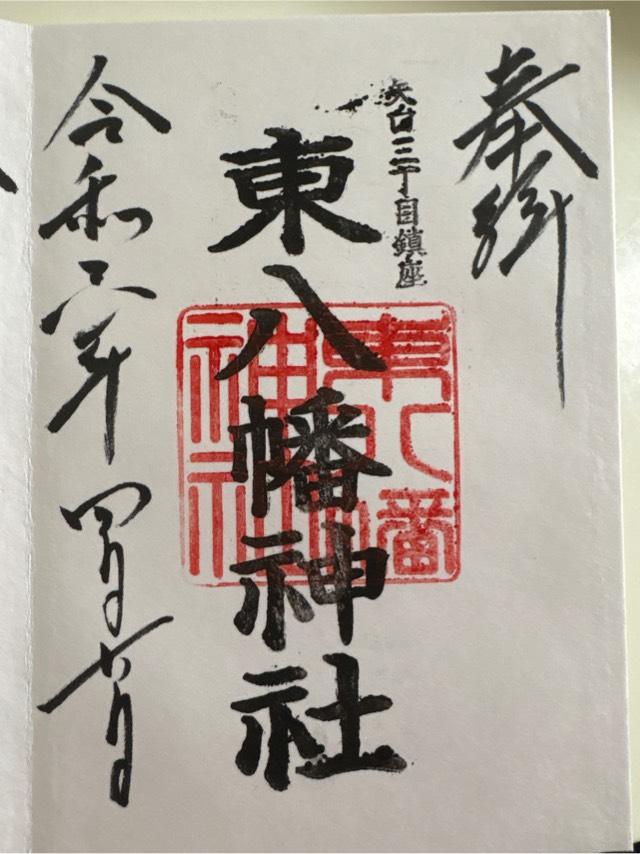 奉拝
矢口三丁目鎮座
東八幡神社
東八幡神社
令和六年 四月日